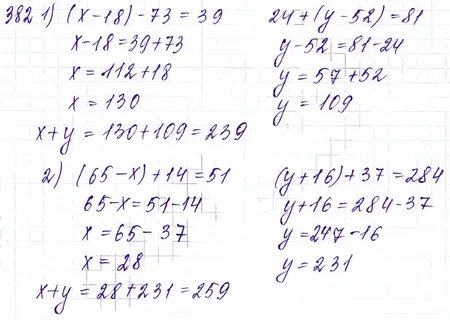 382 1) (x-18)-73=39
x-18=39+73
x=112+18
x=130
24+(y-52)=81
y-52=81-24
y=57+52
y=109
x+y=130+109=239
2) (65-x)+14=51
65-x=51-14
x=65-37
x=28
(y+16)+37=284
y+16=284-37
y=247-16
y=231
x+y=28+231=259